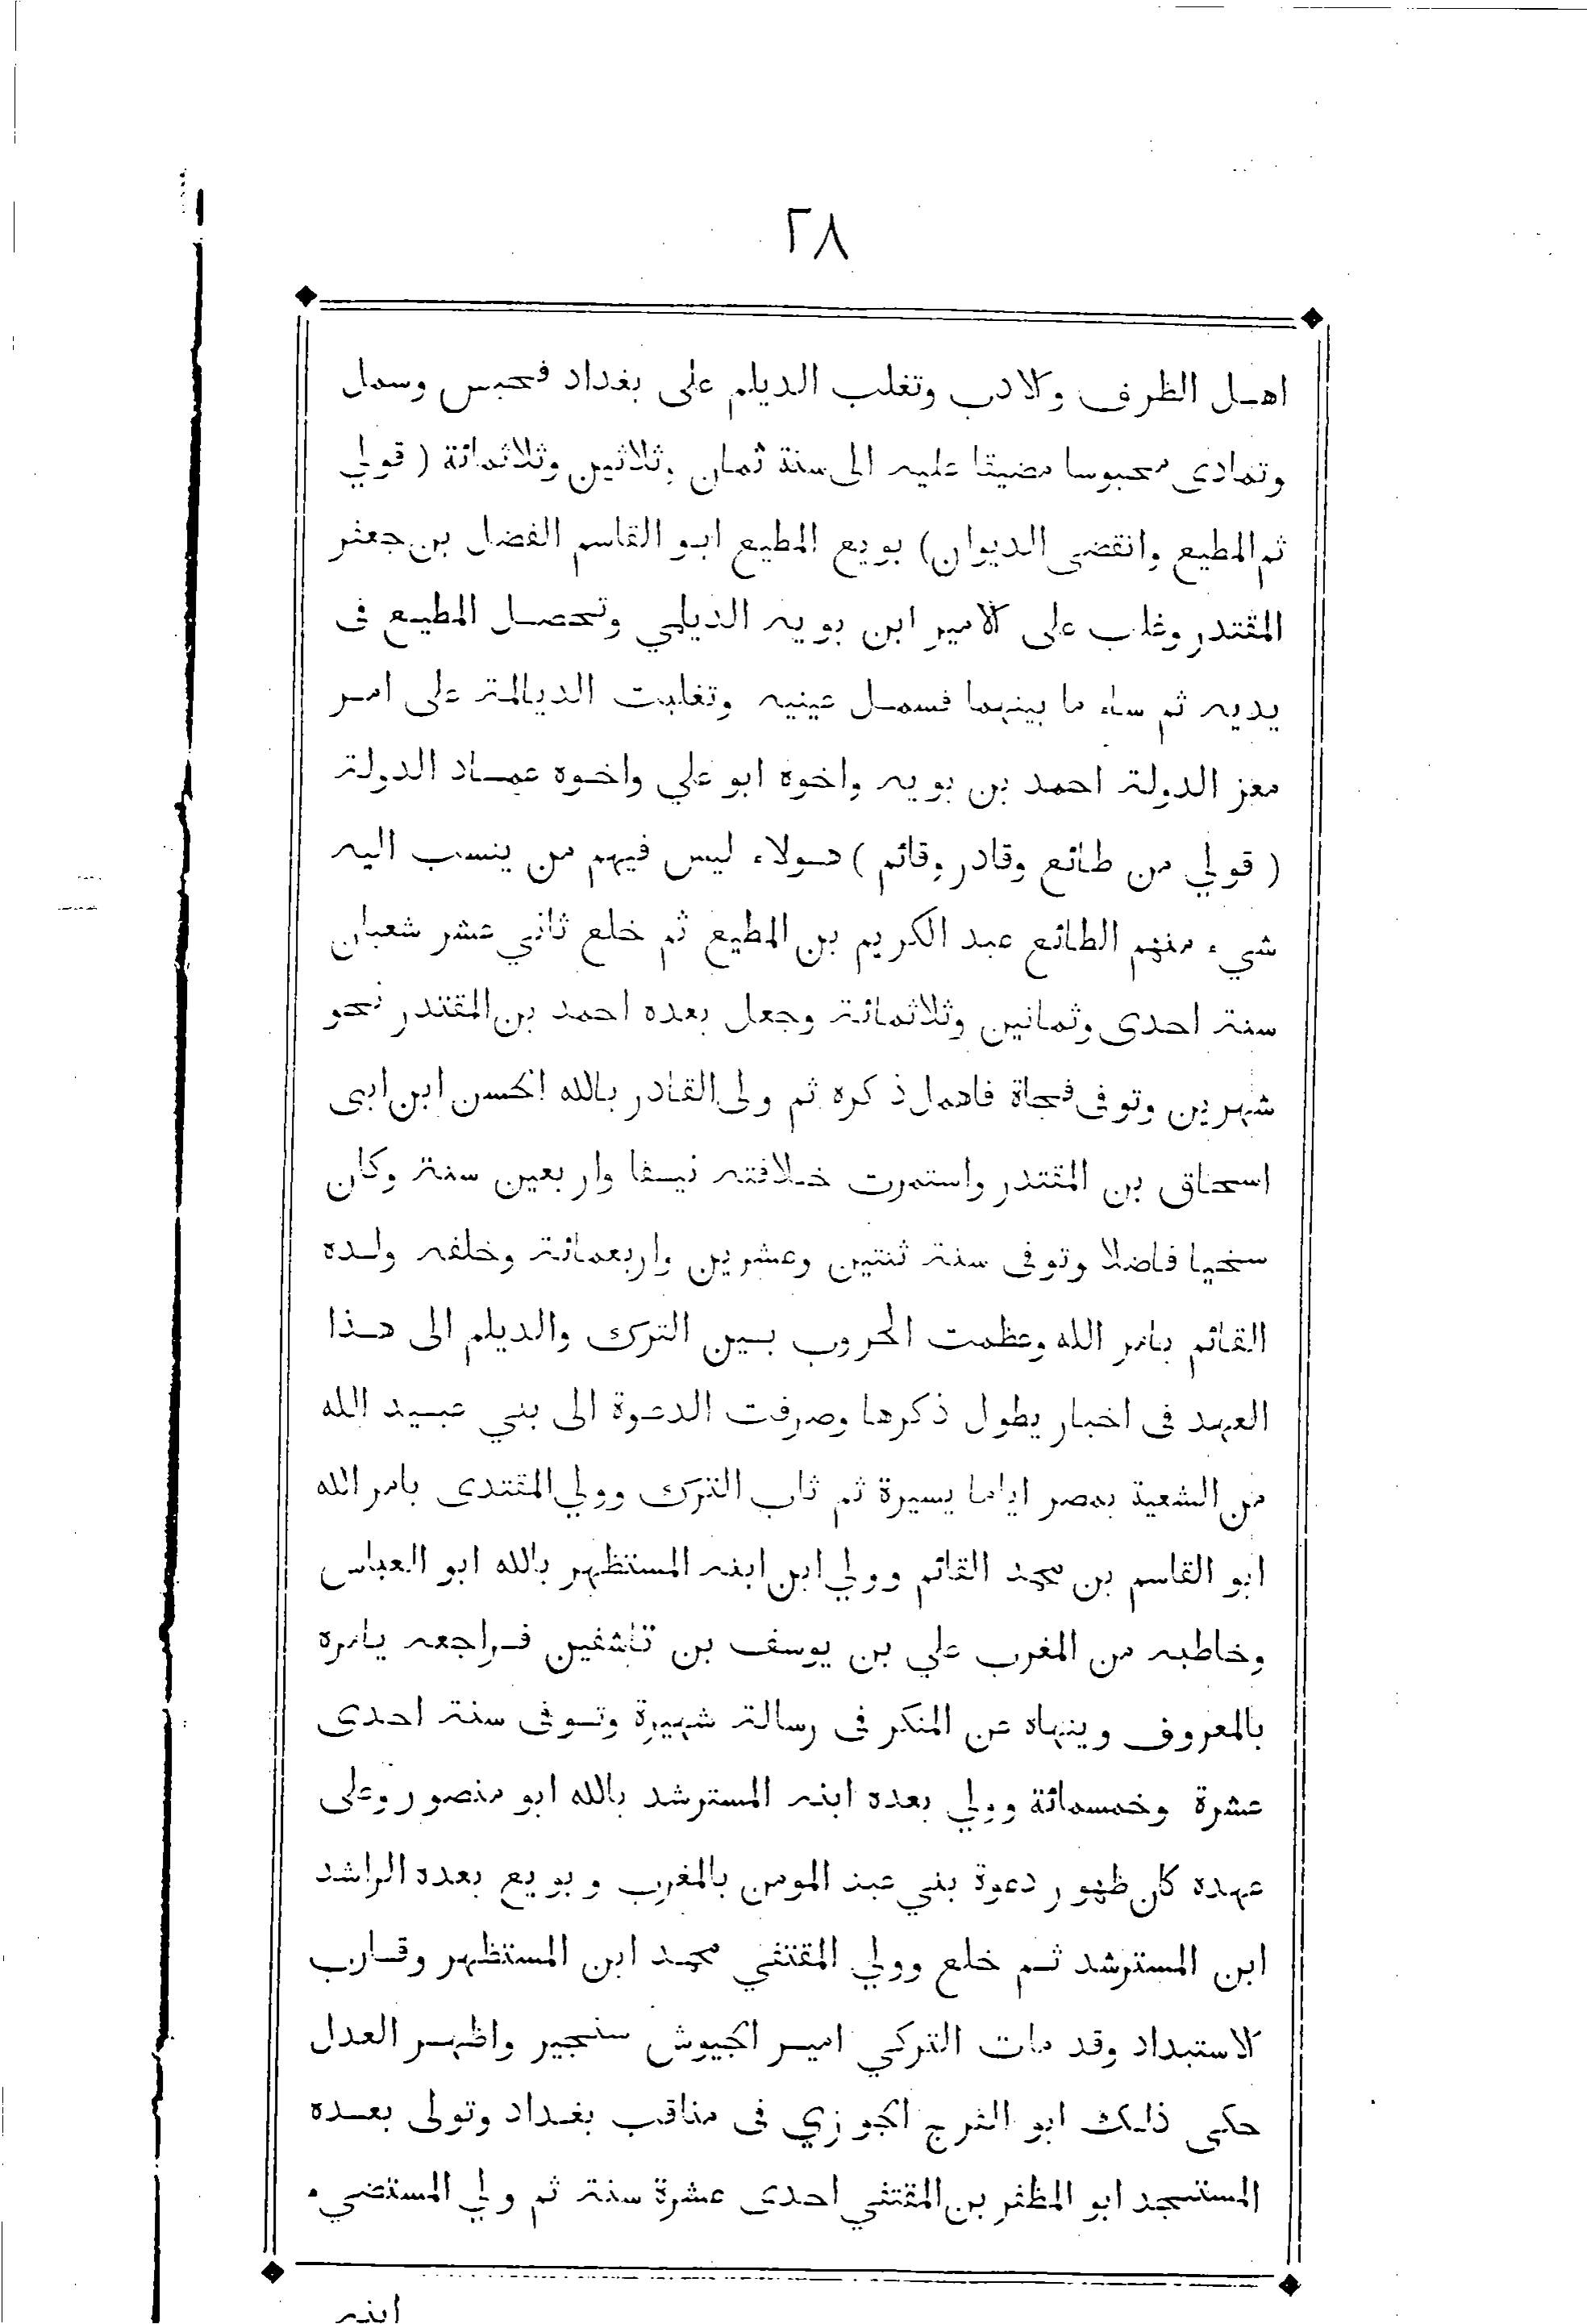 ٢٨
اهل الظرف والادب وتغلب الديلم على بغداد فحبس وسمل
وتمادى محبوسا مضيقا عليه الى سنة ثمان وثلاثين وثلاثمائة ( قولي
ثم المطيع وانقضى الديوان) بويع المطيع ابو القاسم الفضل بن جعفر
المقتدر وغلب على الامير ابن بويه الديلمي وتحصل المطيع فى
يديه ثم ساء ما بينهما فسمل عينيه وتغلبت الديالمة على امر
معز الدولة احمد بن بويه واخوه ابو علي واخوه عماد الدولة
( قولي من طائع وقادر وقائم ) هولاء ليس فيهم من ينسب اليه
شيء منهم الطائع عبد الكريم بن المطيع ثم خلع ثاني عشر شعبان
سنة احدى وثمانين وثلاثمائة وجعل بعده احمد بن المقتدر نحو
شهرين وتوفى فجاة فاهمل ذكره ثم ولى القادر بالله الحسن ابن ابى
اسحاق بن المقتدر واستمرت خلافته نيفا واربعين سنة وكان
سخيا فاضلا وتوفى سنة ثنتين وعشرين واربعمائة وخلفه ولده
القائم بامر الله وعظمت الحروب بين الترك والديلم الى هذا
العهد فى اخبار يطول ذكرها وصرفت الدعوة الى بني عبيد الله
من الشعية بمصر اياما يسيرة ثم ثاب الترك وولي المقتدى بامر الله
ابو القاسم بن محمد القائم وولي ابن ابنه المستظهر بالله ابو العباس
وخاطبه من المغرب علي بن يوسف بن تاشفين فراجعه يامره
بالمعروف وينهاه عن المنكر فى رسالة شهيرة وتوفى سنة احدى
عشرة وخمسمائة وولي بعده ابنه المسترشد بالله ابو منصور وعلى
عهده كان ظهور دعوة بني عبد المومن بالمغرب وبويع بعده الراشد
ابن المسترشد ثم خلع وولي المقتفي محمد ابن المستظهر وقارب
الاستبداد وقد مات التركي امير الجيوش سنجير واظهر العدل
حكى ذلك ابو الفرج الجوزي فى مناقب بغداد وتولى بعده
المستنجد ابو المظفر بن المقتفي احدى عشرة سنة ثم ولي المستضيء
ابنه